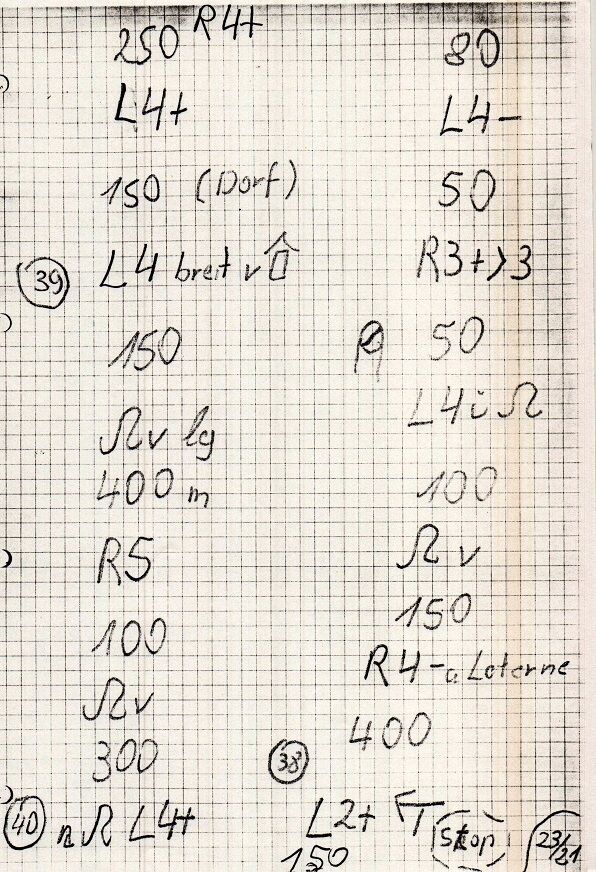 250 R4+
L4+
150 (Dorf)
39 L4 breit v
150
Ω v lg
400 m
R5
100
Ω v
300
40 n Ω L4+
80
L4-
50
R3+>3
50
L4 ü Ω
100
Ω v
150
R4- a Laterne
400
38
L2+ stop
150
23/21